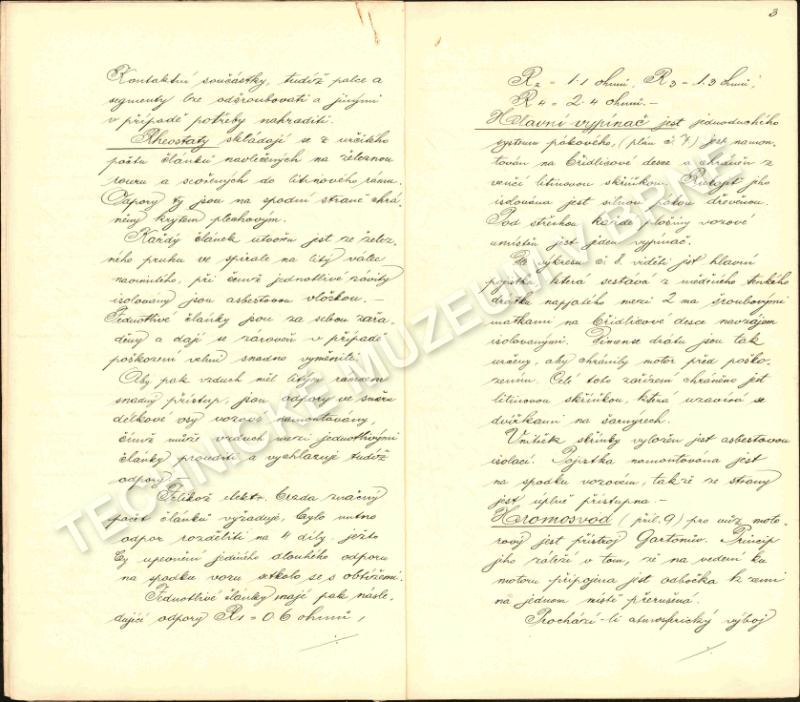 Kontaktní součástky, tudíž palce a
segmenty lze odšroubovati a jinými
v případě potřeby nahraditi.
Rheostaty skládají se z určitého
počtu článků navlečených na železnou
rouru a sevřených do litinového rámu.
Odpory ty jsou na spodní straně chrá-
něny krytem plechovým.
Každý článek utvořen jest ze želez-
ného pruhu ve spirále na litý válec
navinutého, při čemž jednotlivé závity
isolovány jsou asbestovou vložkou. –
Jednotlivé články jsou za sebou zařa-
děny a dají se zároveň v případě
poškození velmi snadno vyměniti.
Aby pak vzduch měl litým rámcem
snadný přístup, jsou odpory ve směru
délkové osy vozové namontovány,
čímž může vzduch mezi jednotlivými
články prouditi a vychlazuje tudíž
odpory.
Jelikož elektr. brzda značný
počet článků vyžaduje, bylo nutno
odpor rozděliti na 4 díly, ježto
by upevnění jediného dlouhého odporu
na spodku vozu setkalo se s obtížemi.
Jednotlivé články mají pak násle-
dující odpory R1 = 0.6 ohmů,
3
R2 = 1.1 ohmů, R3 = 1.3 ohmů,
R4 = 2.4 ohmů. –
Hlavní vypínač jest jednoduchého
systemu pákového, (plán č. 7) jest namon-
tován na břidlicové desce a chráněn z
venčí litinovou skříňkou. Rukojeť jeho
isolována jest silnou pákou dřevěnou.
Pod střechou každé plošiny vozové
umístěn jest jeden vypínač.
Na výkresu č. 8. viděti jest hlavní
pojistku která sestává z měděného tenkého
drátku napjatého mezi 2 ma šroubovými
matkami na břidlicové desce navzájem
isolovanými. Dimense drátu jsou tak
určeny, aby chránily motor před poško-
zením. Celé toto zařízení chráněno jest
litinovou skříňkou, která uzavírá se
dvířkami na šarnýrech.
Vnitřek skřínky vyložen jest asbestovou
isolací. Pojistka namontována jest
na spodku vozovém, takže se strany
jest úplně přístupna –
Hromosvod (příl. 9) pro vůz moto-
rový jest přístroj Gartonův. Princip
jeho záleží v tom, že na vedení ku
motoru připojena jest odbočka k zemi
na jednom místě přerušená.
Prochází-li atmosferický výboj
TECHNICKÉ MUZEUM V BRNĚ